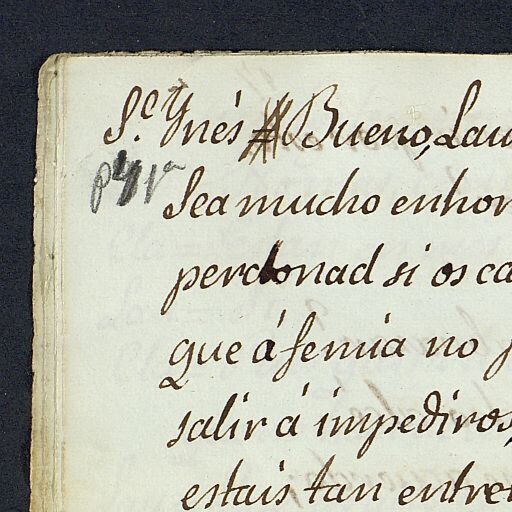 S.e Ynés Bueno, Lau
Sea mucho enhor
perdonad si os ca
que á fenua no
salir á impediros,
estais tan entre